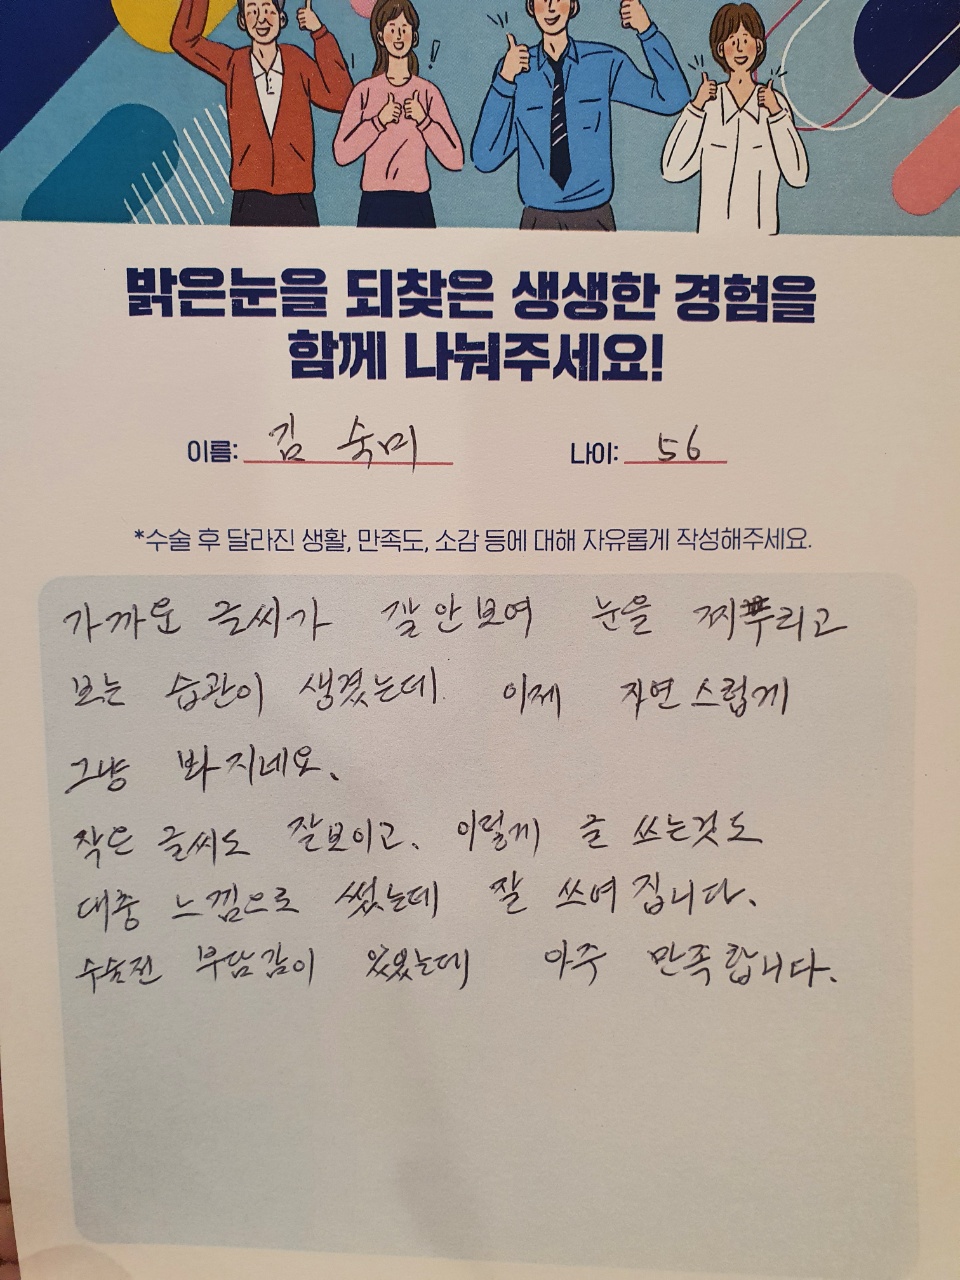 밝은눈을 되찾은 생생한 경험을
함께 나눠주세요!
이름: 김 숙미 나이: 56
*수술 후 달라진 생활, 만족도, 소감 등에 대해 자유롭게 작성해주세요.
가까운 글씨가 잘 안보여 눈을 찌뿌리고
보는 습관이 생겼는데. 이제 자연스럽게
그냥 봐지네요.
작은 글씨도 잘보이고. 이렇게 글 쓰는것도
대충 느낌으로 썼는데 잘 쓰여집니다.
수술전 부담감이 있었는데 아주 만족합니다.